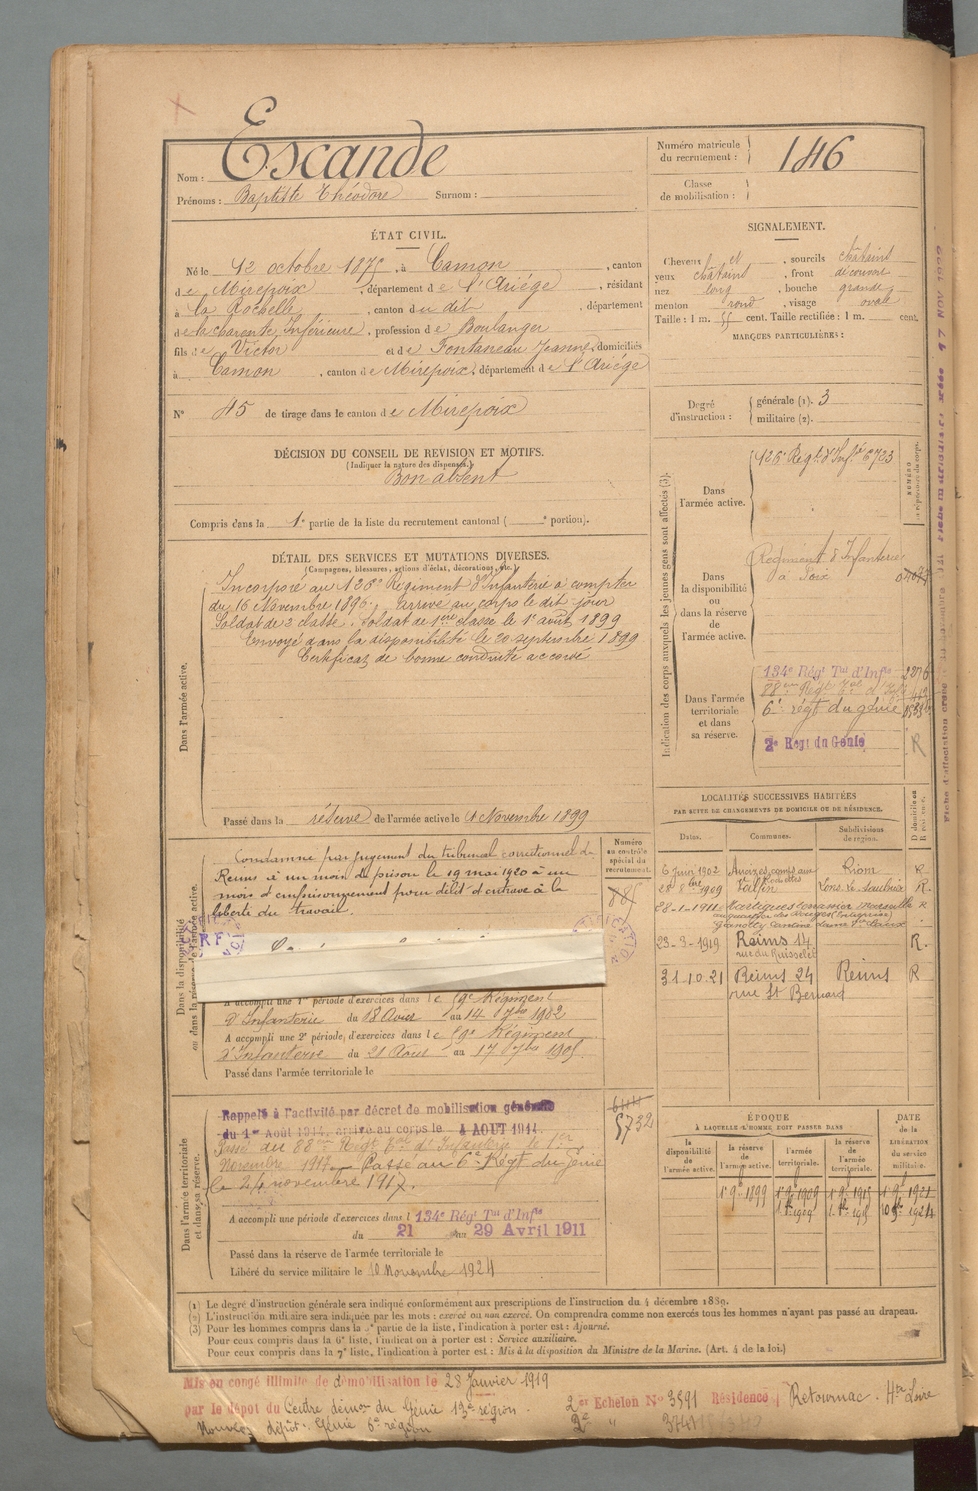 Nom : Escande
Prénoms : Baptiste Théodore Surnom :
Numéro matricule
du recrutement : 146
Classe
de mobilisation :
ÉTAT CIVIL.
Né le 12 octobre 1875, à Camon, canton
de Mirepoix, département de l'Ariége, résidant
à la Rochelle, canton du dit, département
de la Charente Inférieure, profession de Boulanger
fils de Victor et de Fontaneau Jeanne, domiciliés
à Camon, canton de Mirepoix, département de l'Ariége
N° 45 de tirage dans le canton de Mirepoix
SIGNALEMENT.
Cheveux et, sourcils châtains
yeux châtains, front découvert
nez long, bouche grande
menton rond, visage ovale
Taille : 1 m. 55 cent. Taille rectifiée : 1 m. cent.
MARQUES PARTICULIÈRES :
Degré
d'instruction :
générale (1). 3
militaire (2).
DÉCISION DU CONSEIL DE REVISION ET MOTIFS.
(Indiquer la nature des dispenses.)
Bon absent
Compris dans la 1e partie de la liste du recrutement cantonal ( e portion).
DÉTAIL DES SERVICES ET MUTATIONS DIVERSES.
(Campagnes, blessures, actions d'éclat, décorations, etc.)
Dans l'armée active.
Incorporé au 126e Régiment d'Infanterie à compter
du 16 Novembre 1896, arrivé au corps le dit jour
Soldat de 2e classe. Soldat de 1ère classe le 1er août 1899
Envoyé dans la disponibilité le 20 septembre 1899
Certificat de bonne conduite accordé
Passé dans la réserve de l'armée active le 1 Novembre 1899
Indication des corps auxquels les jeunes gens sont affectés (3).
Dans
l'armée active.
126e Régt d'Infie 6723
NUMÉRO
Dans
la disponibilité
ou
dans la réserve
de
l'armée active.
Régiment d'Infanterie
à Foix
Dans l'armée
territoriale
et dans
sa réserve.
134e Régt Tal d'Infie 2276
88me Régt Tal d'Infie
6e régt du génie
2e Régt du Génie
R
Dans la disponibilité
ou dans la réserve de l'armée active.
Condamné par jugement du tribunal correctionnel de
Reims à un mois de prison le 19 mai 1920 à un
mois d'emprisonnement pour délit d'entrave à la
liberté du travail.
RF
Numéro
au contrôle
spécial du
recrutement.
A accompli une 1re période d'exercices dans le 59e Régiment
d'Infanterie du 18 Août au 14 7bre 1902
A accompli une 2e période d'exercices dans le 59e Régiment
d'Infanterie du 21 Août au 17 7bre 1905
Passé dans l'armée territoriale le
LOCALITÉS SUCCESSIVES HABITÉES
PAR SUITE DE CHANGEMENTS DE DOMICILE OU DE RÉSIDENCE.
Dates. Communes. Subdivisions
de région.
6 juin 1902 Riom R
1909 Lons-le-Saulnier R
28-1-1911 Martigues Marseille R
23-3-1919 Reims 14 R
rue du Ruisselet
31.10.21 Reims 24 Reims R
rue St Bernard
Dans l'armée territoriale
et dans sa réserve.
Rappelé à l'activité par décret de mobilisation générale
du 1er Août 1914, arrivé au corps le 4 AOUT 1914.
Passé au 88me Régt Tal d'Infanterie le 1er
Novembre 1917. Passé au 6e Régt du Génie
le 24 novembre 1917.
5732
A accompli une période d'exercices dans l 134e Régt Tal d'Infie
du 21 au 29 Avril 1911
Passé dans la réserve de l'armée territoriale le
Libéré du service militaire le 10 Novembre 1924
ÉPOQUE
À LAQUELLE L'HOMME DOIT PASSER DANS
la
disponibilité
de
l'armée active.
la réserve
de
l'armée active.
l'armée
territoriale.
la réserve
de
l'armée
territoriale.
DATE
de la
LIBÉRATION
du service
militaire.
1er 9bre 1899 1er 9bre 1909 1er 9bre 1915 1er 9bre 1921
(1) Le degré d'instruction générale sera indiqué conformément aux prescriptions de l'instruction du 4 décembre 1889.
(2) L'instruction militaire sera indiquée par les mots : exercé ou non exercé. On comprendra comme non exercés tous les hommes n'ayant pas passé au drapeau.
(3) Pour les hommes compris dans la 5e partie de la liste, l'indication à porter est : Ajourné.
Pour ceux compris dans la 6e liste, l'indication à porter est : Service auxiliaire.
Pour ceux compris dans la 7e liste, l'indication à porter est : Mis à la disposition du Ministre de la Marine. (Art. 4 de la loi.)
Mis en congé illimité de démobilisation le 28 Janvier 1919
par le dépôt du Centre démor du Génie 13e région. 2er Echelon N° 3591 Résidence Retournac. Hte Loire
Nouveau dépôt : Génie 6e région 2e "